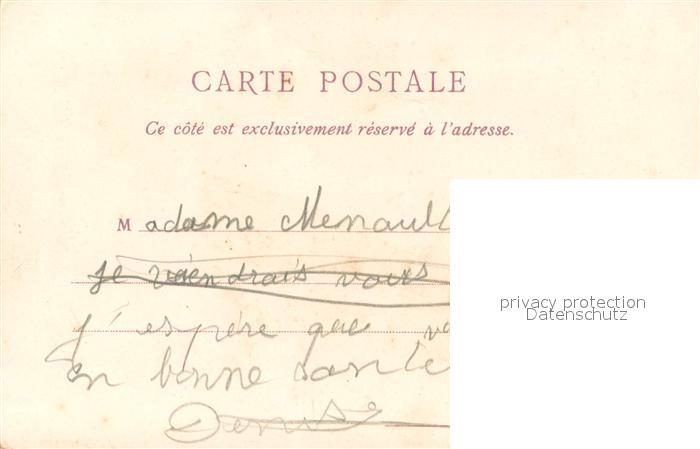 CARTE POSTALE
Ce côté est exclusivement réservé à l'adresse.
Madame Menault
je viendrais vous
j'espère que vo
en bonne sante
Denise
privacy protection
Datenschutz